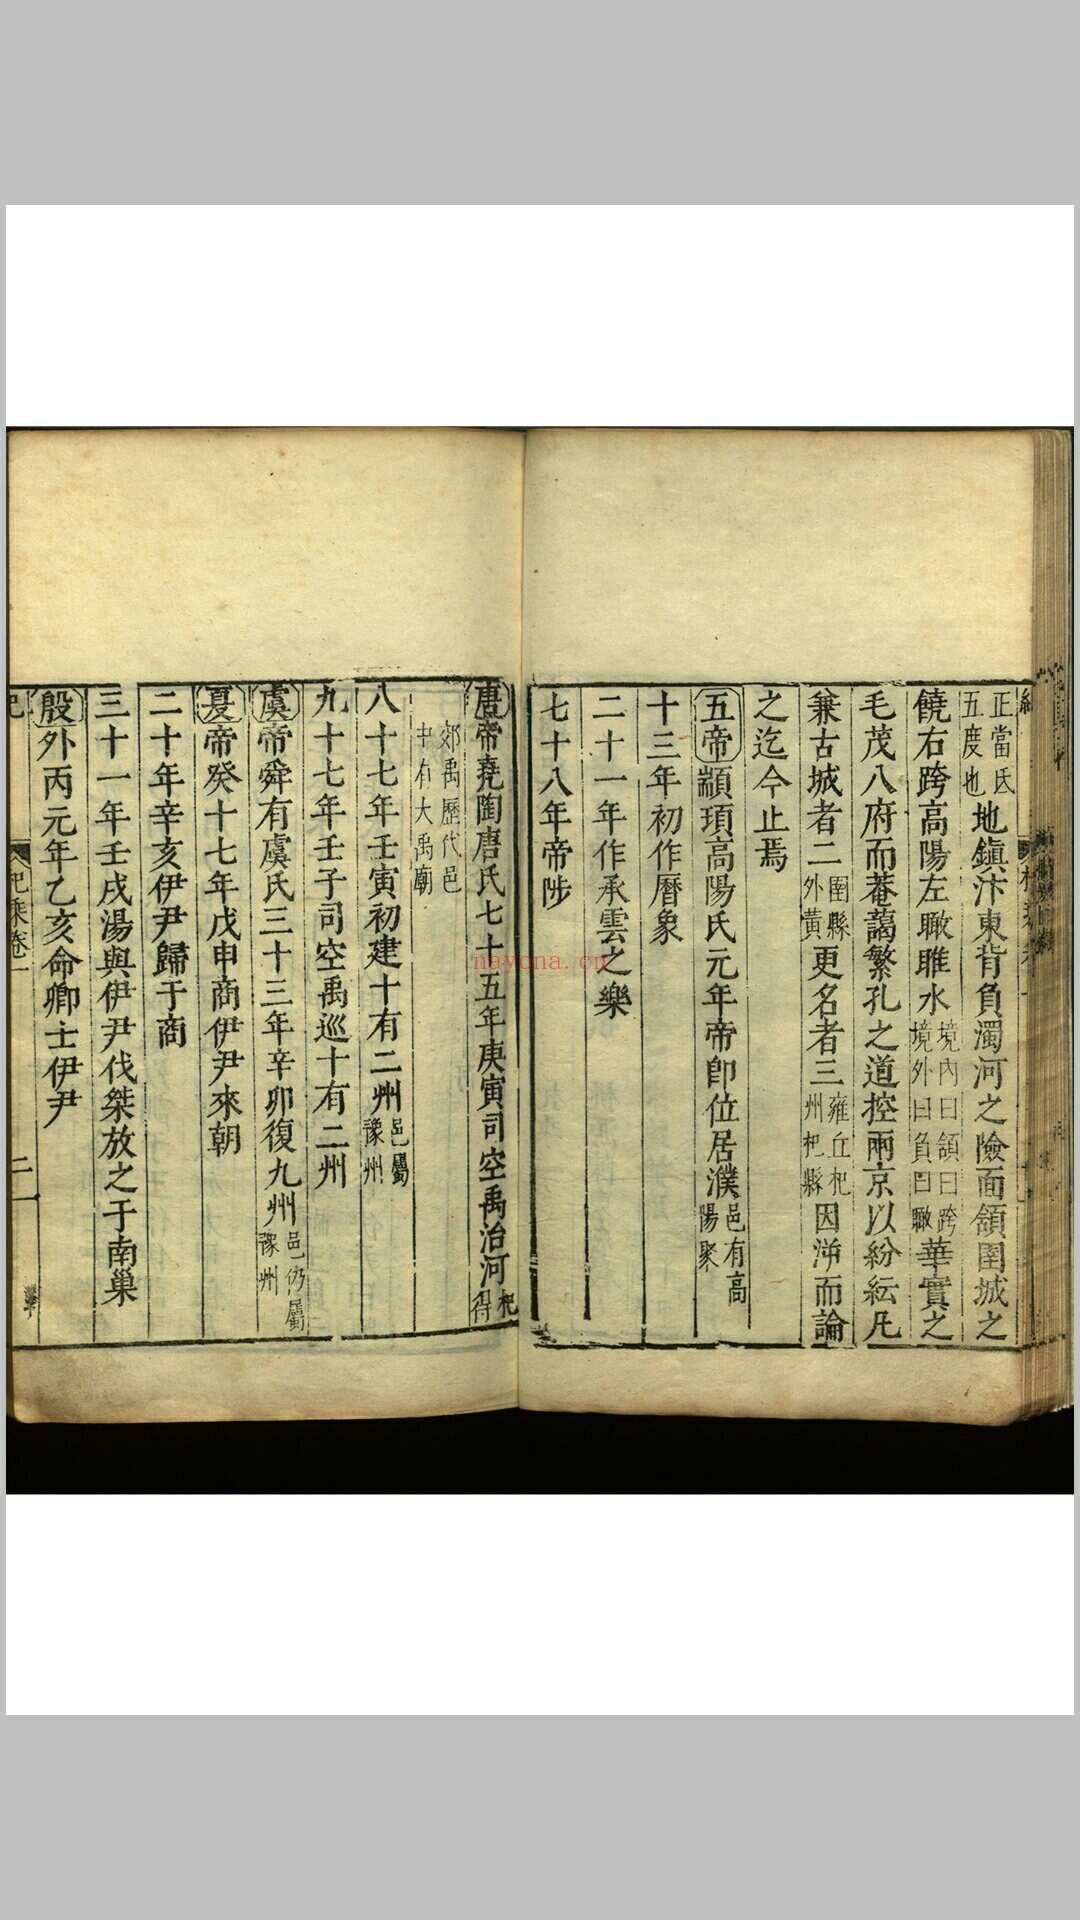 正當氐五度也地鎮汴東背負濁河之險面領圉城之
饒右跨高陽左瞰睢水境內曰領曰跨境外曰負曰瞰華實之
毛茂八府而菴藹繁孔之道控兩京以紛紜凡
兼古城者二圉縣外黃更名者三雍丘杞州杞縣因泝而論
之迄今止焉
五帝顓頊高陽氏元年帝即位居濮邑有高陽聚
十三年初作曆象
二十一年作承雲之樂
七十八年帝陟
唐帝堯陶唐氏七十五年庚寅司空禹治河杞得
郊禹歷代邑中有大禹廟
八十七年壬寅初建十有二州邑屬豫州
九十七年壬子司空禹巡十有二州
虞帝舜有虞氏三十三年辛卯復九州邑仍屬豫州
夏帝癸十七年戊申商伊尹來朝
二十年辛亥伊尹歸于商
三十一年壬戌湯與伊尹伐桀放之于南巢
殷外丙元年乙亥命卿士伊尹
杞乘卷一
二
nayona.cn